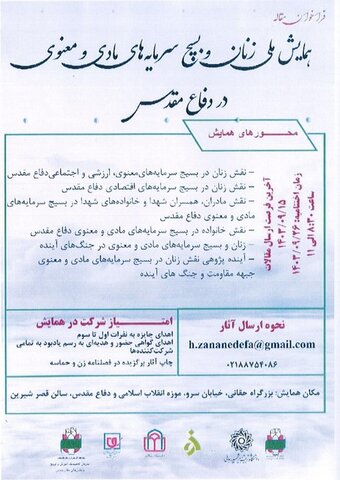 فراخوان مقاله
همایش ملی زنان و بسیج سرمایه‌های مادی و معنوی
در دفاع مقدس
محورهای همایش
– نقش زنان در بسیج سرمایه‌های معنوی، ارزشی و اجتماعی دفاع مقدس
– نقش زنان در بسیج سرمایه‌های اقتصادی دفاع مقدس
– نقش مادران، همسران شهدا و خانواده‌های شهدا در بسیج سرمایه‌های
مادی و معنوی دفاع مقدس
– نقش خانواده در بسیج سرمایه‌های مادی و معنوی دفاع مقدس
– زنان و بسیج سرمایه‌های مادی و معنوی در جنگ‌های آینده
– آینده پژوهی نقش زنان در بسیج سرمایه‌های مادی و معنوی
جبهه مقاومت و جنگ های آینده
آخرین فرصت ارسال مقالات
۱۴۰۳/۰۹/۱۵
زمان اختتامیه: ۱۴۰۳/۰۹/۲۶
ساعت ۸:۳۰ الی ۱۱
نحوه ارسال آثار
h.zananedefa@gmail.com
۰۲۱۸۸۷۵۴۰۸۶
امتیاز شرکت در همایش
اهدای جایزه به نفرات اول تا سوم
اهدای گواهی حضور و هدیه‌ای به رسم یادبود به تمامی
شرکت‌کننده‌ها
چاپ آثار برگزیده در فصلنامه زن و حماسه
مکان همایش: بزرگراه حقانی، خیابان سرو، موزه انقلاب اسلامی و دفاع مقدس، سالن قصر شیرین